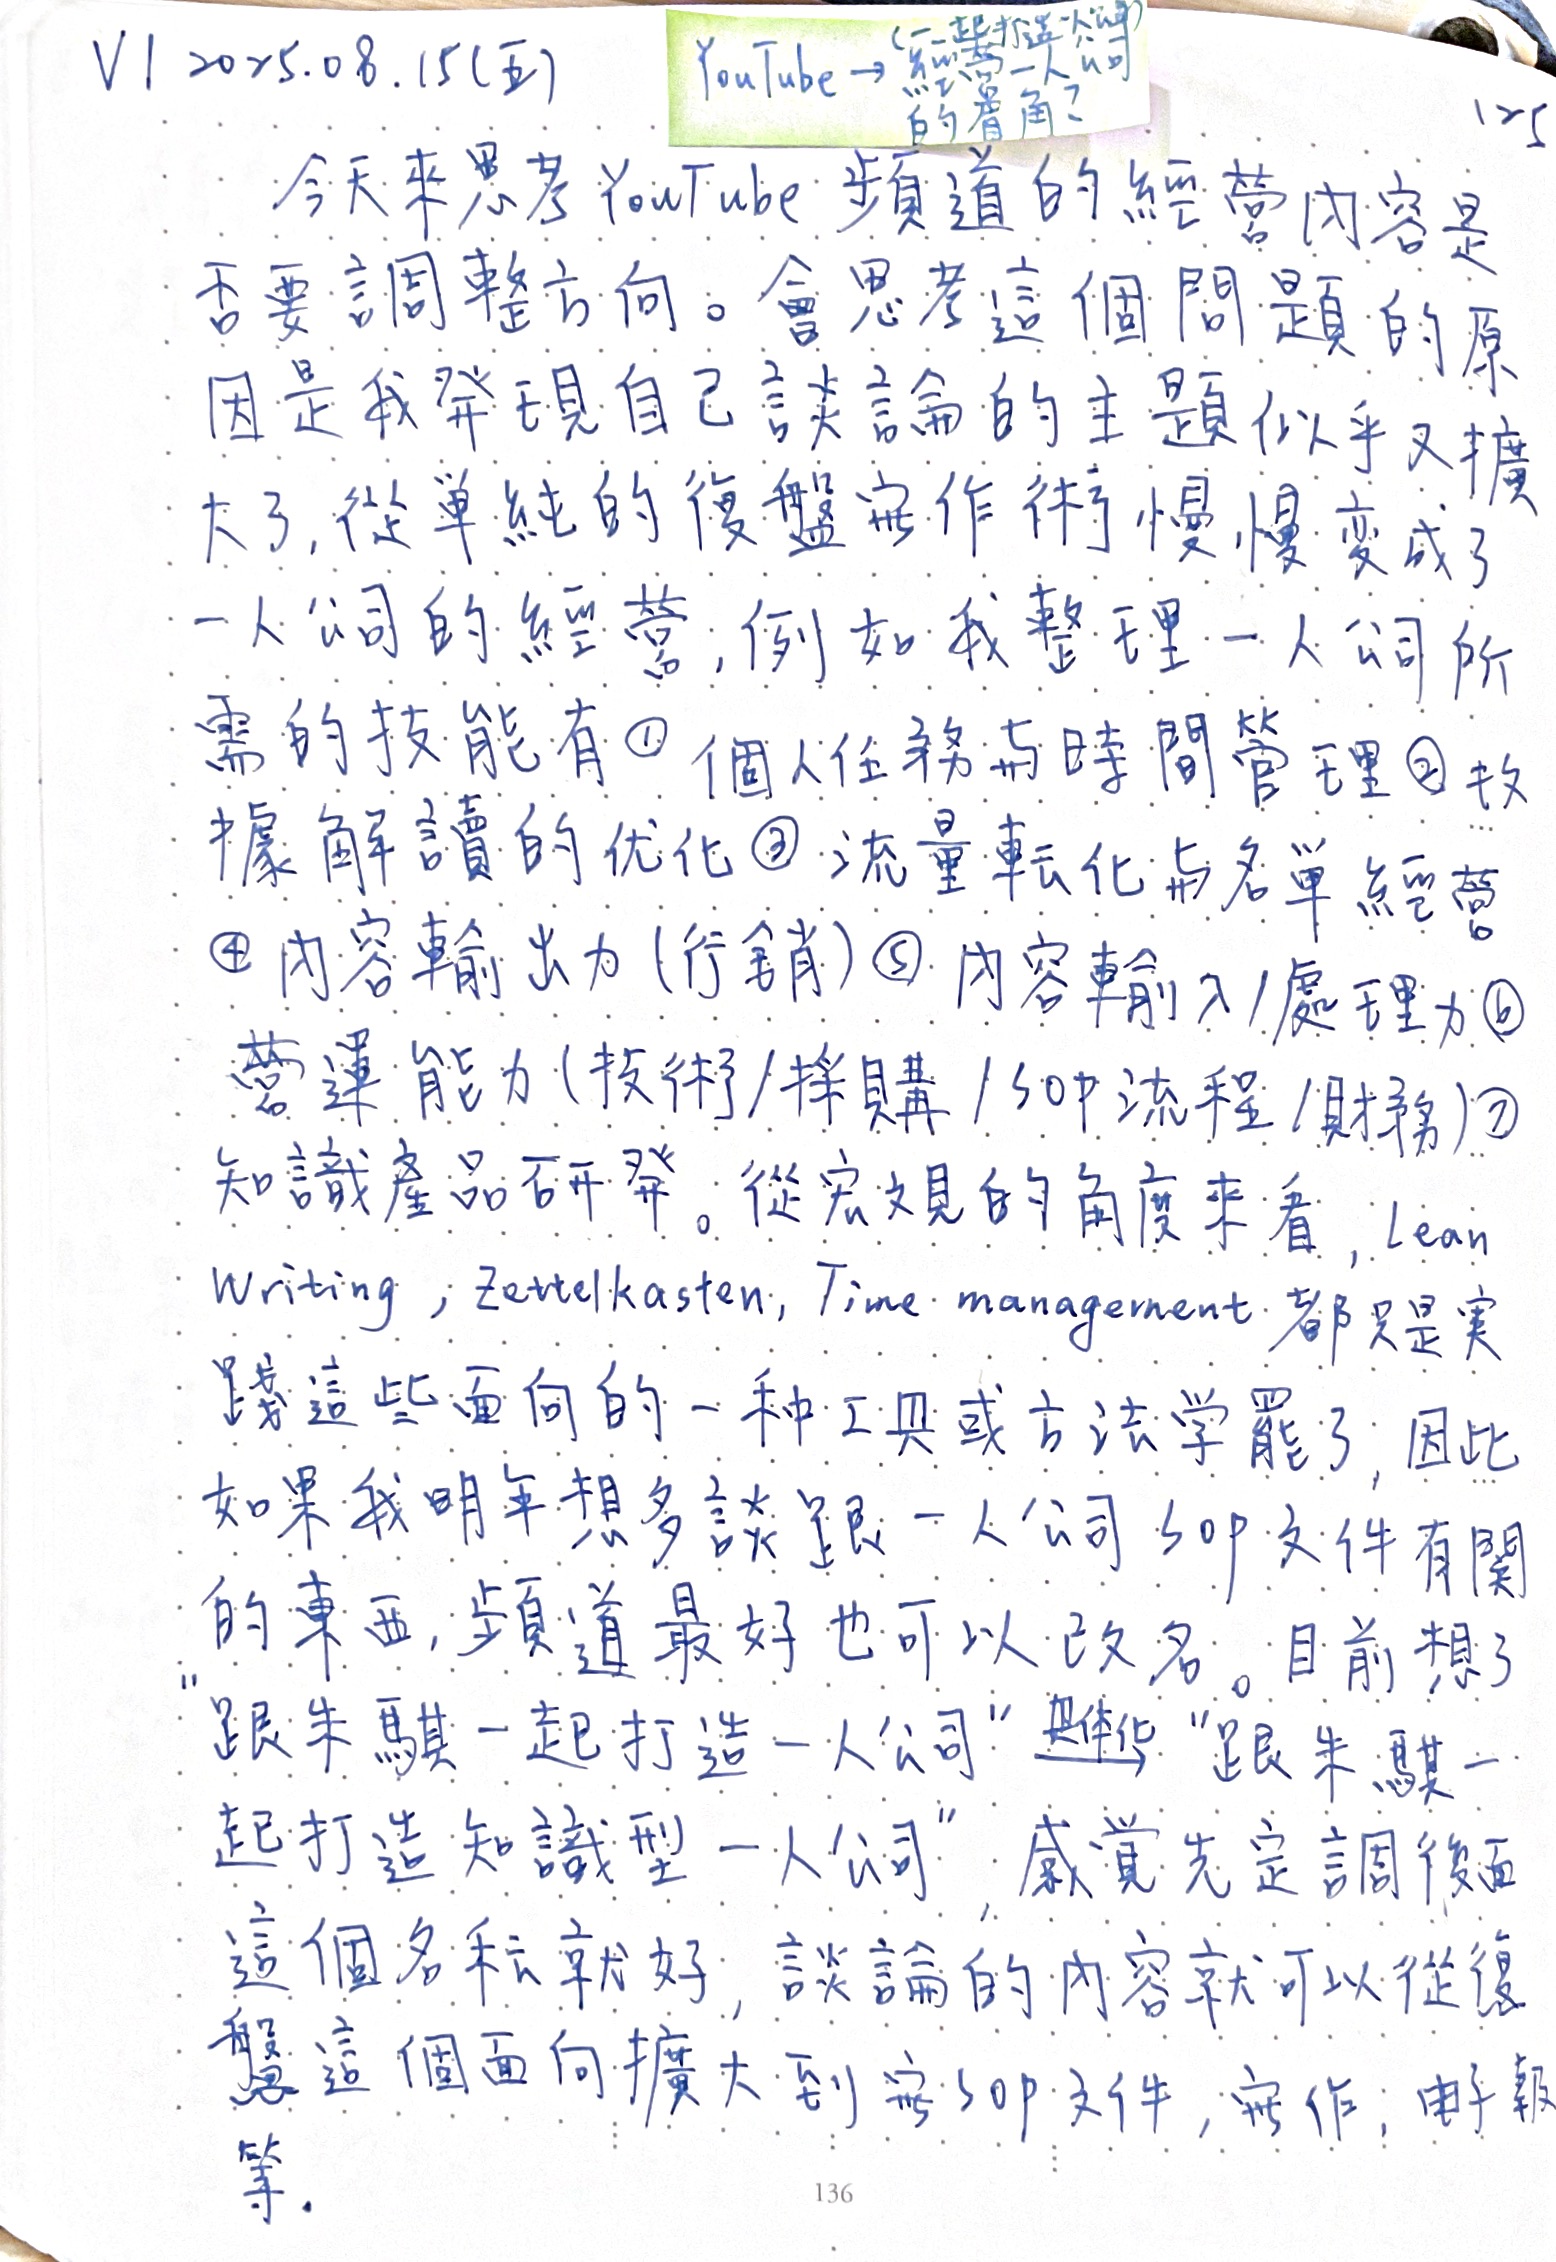 V1 2025.08.15(五)
YouTube → (一起打造一人公司)
經營一人公司
的賣角?
125
今天來思考YouTube頻道的經營內容是
否要調整方向。會思考這個問題的原
因是我發現自己談論的主題似乎又擴
大了,從单純的復盤寫作術慢慢变成了
一人公司的經營,例如我整理一人公司所
需的技能有① 個人任務与時間管理②数
據解讀的优化③流量転化与名單經營
④內容輸出力(行銷)⑤內容輸入/處理力⑥
營運能力(技術/採購/SOP流程/財務)⑦
知識產品研發。從宏观的角度來看,Lean
Writing,Zettelkasten,Time management都只是実
踐這些面向的一种工具或方法学罷了,因此
如果我明年想多談跟一人公司SOP文件有関
的東西,頻道最好也可以改名。目前想了
"跟朱騏一起打造一人公司" 具体化 "跟朱騏一
起打造知識型一人公司",感覚先定調後面
這個名称就好,談論的內容就可以從復
盤這個面向擴大到寫SOP文件,寫作,电子報
等.
136